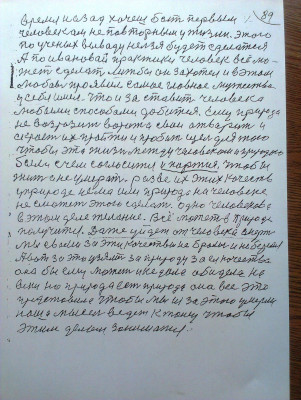 время назад хочеш быть первым 89
человеком неповторным у жизни. Этого
по ученых выводу нельзя будет сделать
А по ивановой практики человек всё мо-
жет сделать. Лишь бы он захотел и в этом
любовь проявил самое главное мужество
у себя имел. Что и заставит человека
любыми способами добится. Ему природа
не возразит ворота свои отварит и
скажет их пройти и зробить цель для того
чтобы эта жизнь между человеком и природою
были с чем согласится у картия. Чтобы
жить не умерать. разве их этих качеств
у природе нема или природа на человека
не сможет этого сделать. одно человека
в этом деле желание. Всё может в природе
получится. Даже уйдет от человека смерть
мы своими за эти качества не брались и не берем
А вот за это взят за природу за ей качества
она бы ему может и не дала обиделась на
веки но природа есть природа она все это
представила чтобы мы из за этого умерли
наша мысль ведет к тому чтобы
этим делом занимались.